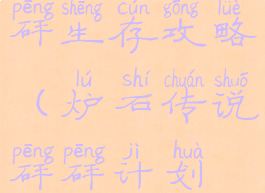 pēng shēng cún gōng lüè
砰生存攻略
lú shí chuán shuō
（炉石传说
pēng pēng jì huà
砰砰计划